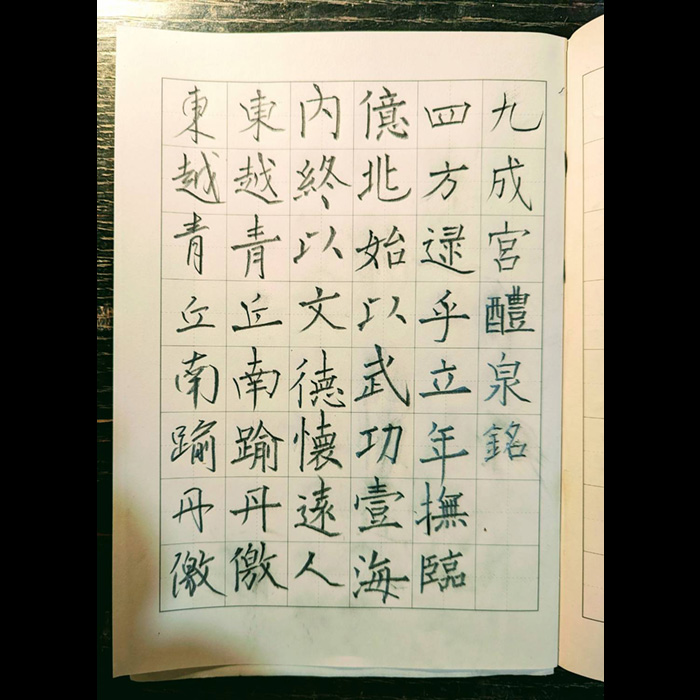 九成宮醴泉銘
四方逮乎立年撫臨
億兆始以武功壹海
內終以文德懷遠人
東越青丘南踰丹徼
東越青丘南踰丹徼